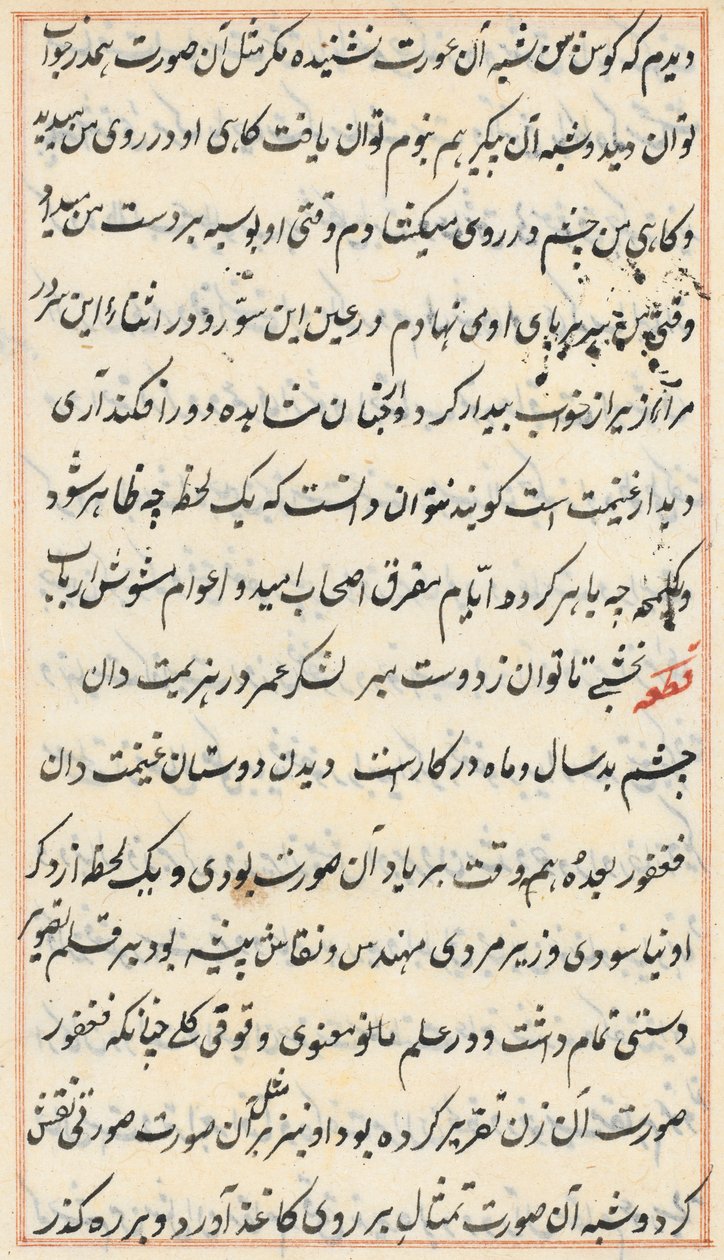 دیدم که کوس من شبه آن عورت نشنیده مگر مثل آن صورت همدر خواب
توان دید و شبه آن پیکر هم بنوم توان یافت کاهی او در روی من میدید
و کاهی من چشم در روی میکشادم وقتی او بوسه بر دست من میداد
وقتی من سر بر پای او می نهادم در عین این سور و در اثناء این سرور
مرا وزیر از خواب بیدار کرد و از چنان مشاهده دور افکند آری
دیدار غنیمت است کویند نتوان دانست که یک لحظه چه ظاهر شود
و یکلمحه چه باهر کردد ایام مفرق اصحاب امید و اعوام مشوش ارباب
قطعه نخشبی تا توان ز دوست مبر لشکر عمر در هزیمت دان
چشم بد سال و ماه در کارست دیدن دوستان غنیمت دان
فغفور بعده همه وقت بر یاد آن صورت بودی و یک لحظه از ذکر
او نیاسودی وزیر مردی مهندس و نقاش پیشه بود بر قلم تصویر
دستی تمام داشت و در علم مانی معنوی وقوفی کلی چنانکه فغفور
صورت آن زن تقریر کرده بود او نیز بر مثل آن صورت صورتی نقش
کرد و شبه آن صورت تمثال بر روی کاغذ آورد و بر ره کذر